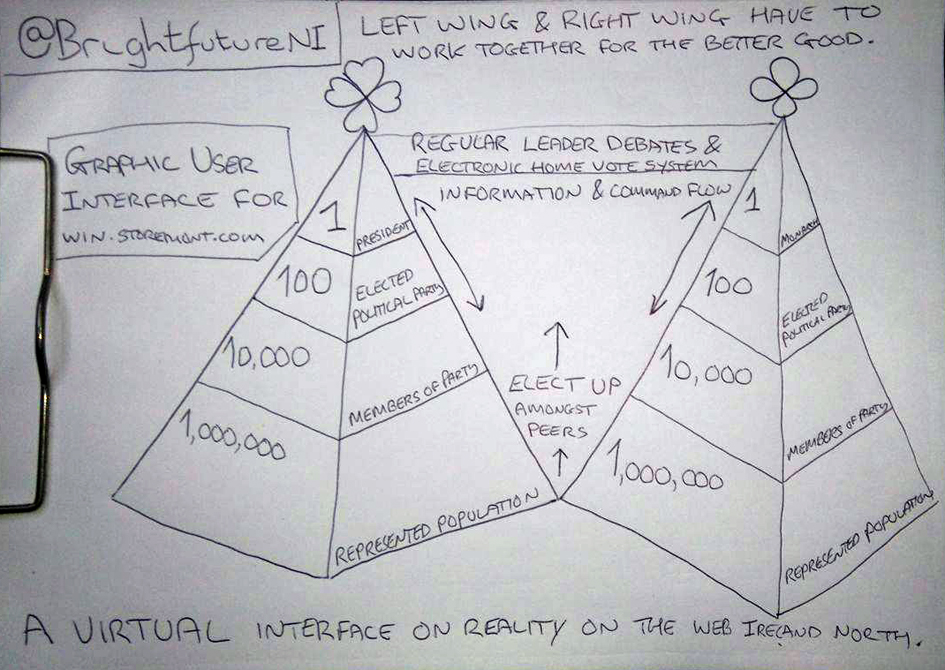 @BrightfutureNI
LEFT WING & RIGHT WING HAVE TO
WORK TOGETHER FOR THE BETTER GOOD.
GRAPHIC USER
INTERFACE FOR
WIN.STOREMONT.COM
REGULAR LEADER DEBATES &
ELECTRONIC HOME VOTE SYSTEM
INFORMATION & COMMAND FLOW
1
PRESIDENT
100
ELECTED
POLITICAL PARTY
10,000
MEMBERS OF PARTY
1,000,000
REPRESENTED POPULATION
ELECT UP
AMONGST
PEERS
1
MONARCH
100
ELECTED
POLITICAL PARTY
10,000
MEMBERS OF PARTY
1,000,000
REPRESENTED POPULATION
A VIRTUAL INTERFACE ON REALITY ON THE WEB IRELAND NORTH.